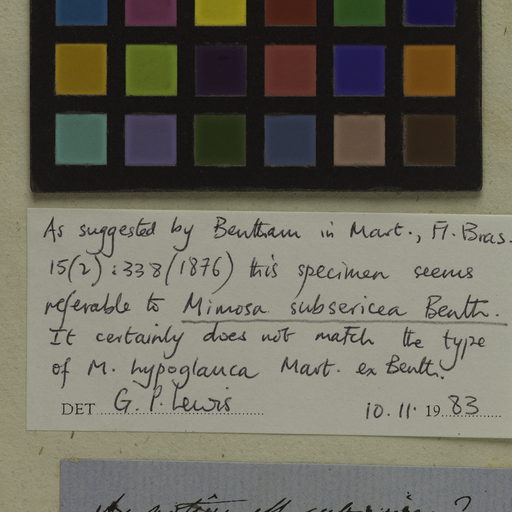 As suggested by Bentham in Mart., Fl. Bras.
15(2):338(1876) this specimen seems
referable to Mimosa subsericea Benth.
It certainly does not match the type
of M. hypoglauca Mart. ex Benth.
DET G. P. Lewis 10.11.1983